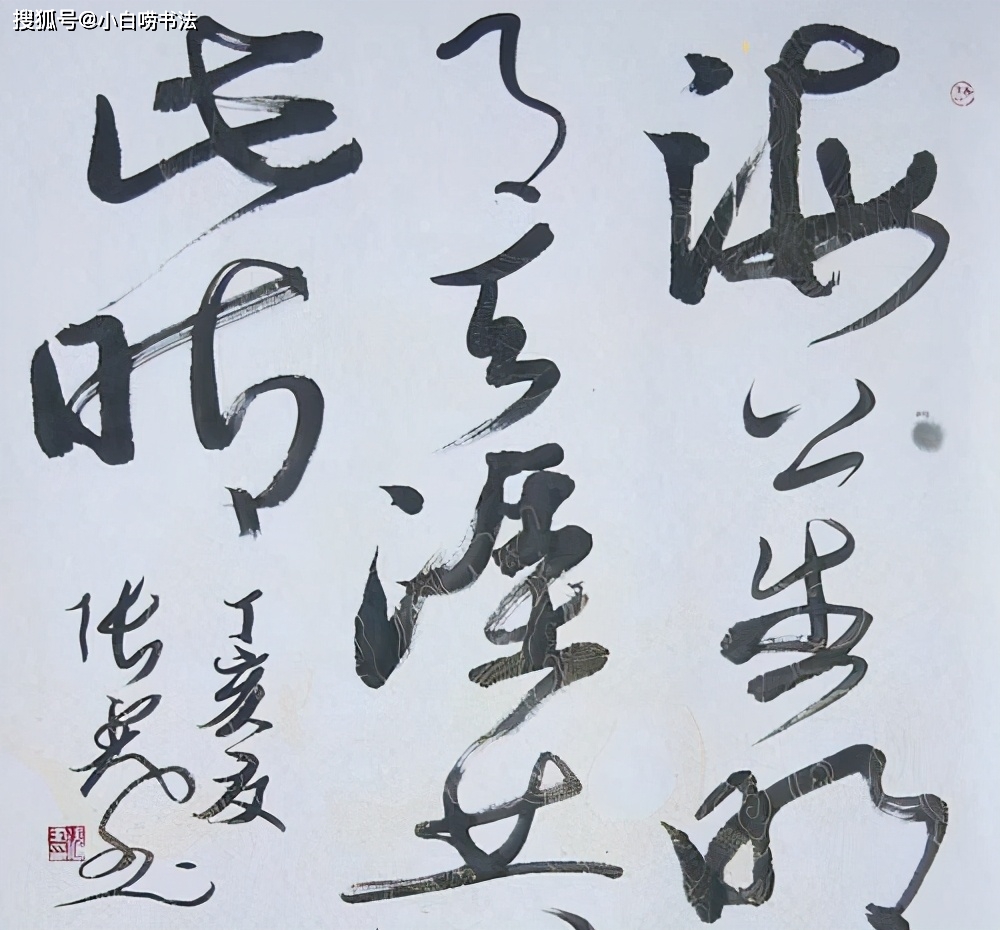 搜狐号@小白唠书法
海上生明
月天涯共
此时
丁亥夏
张